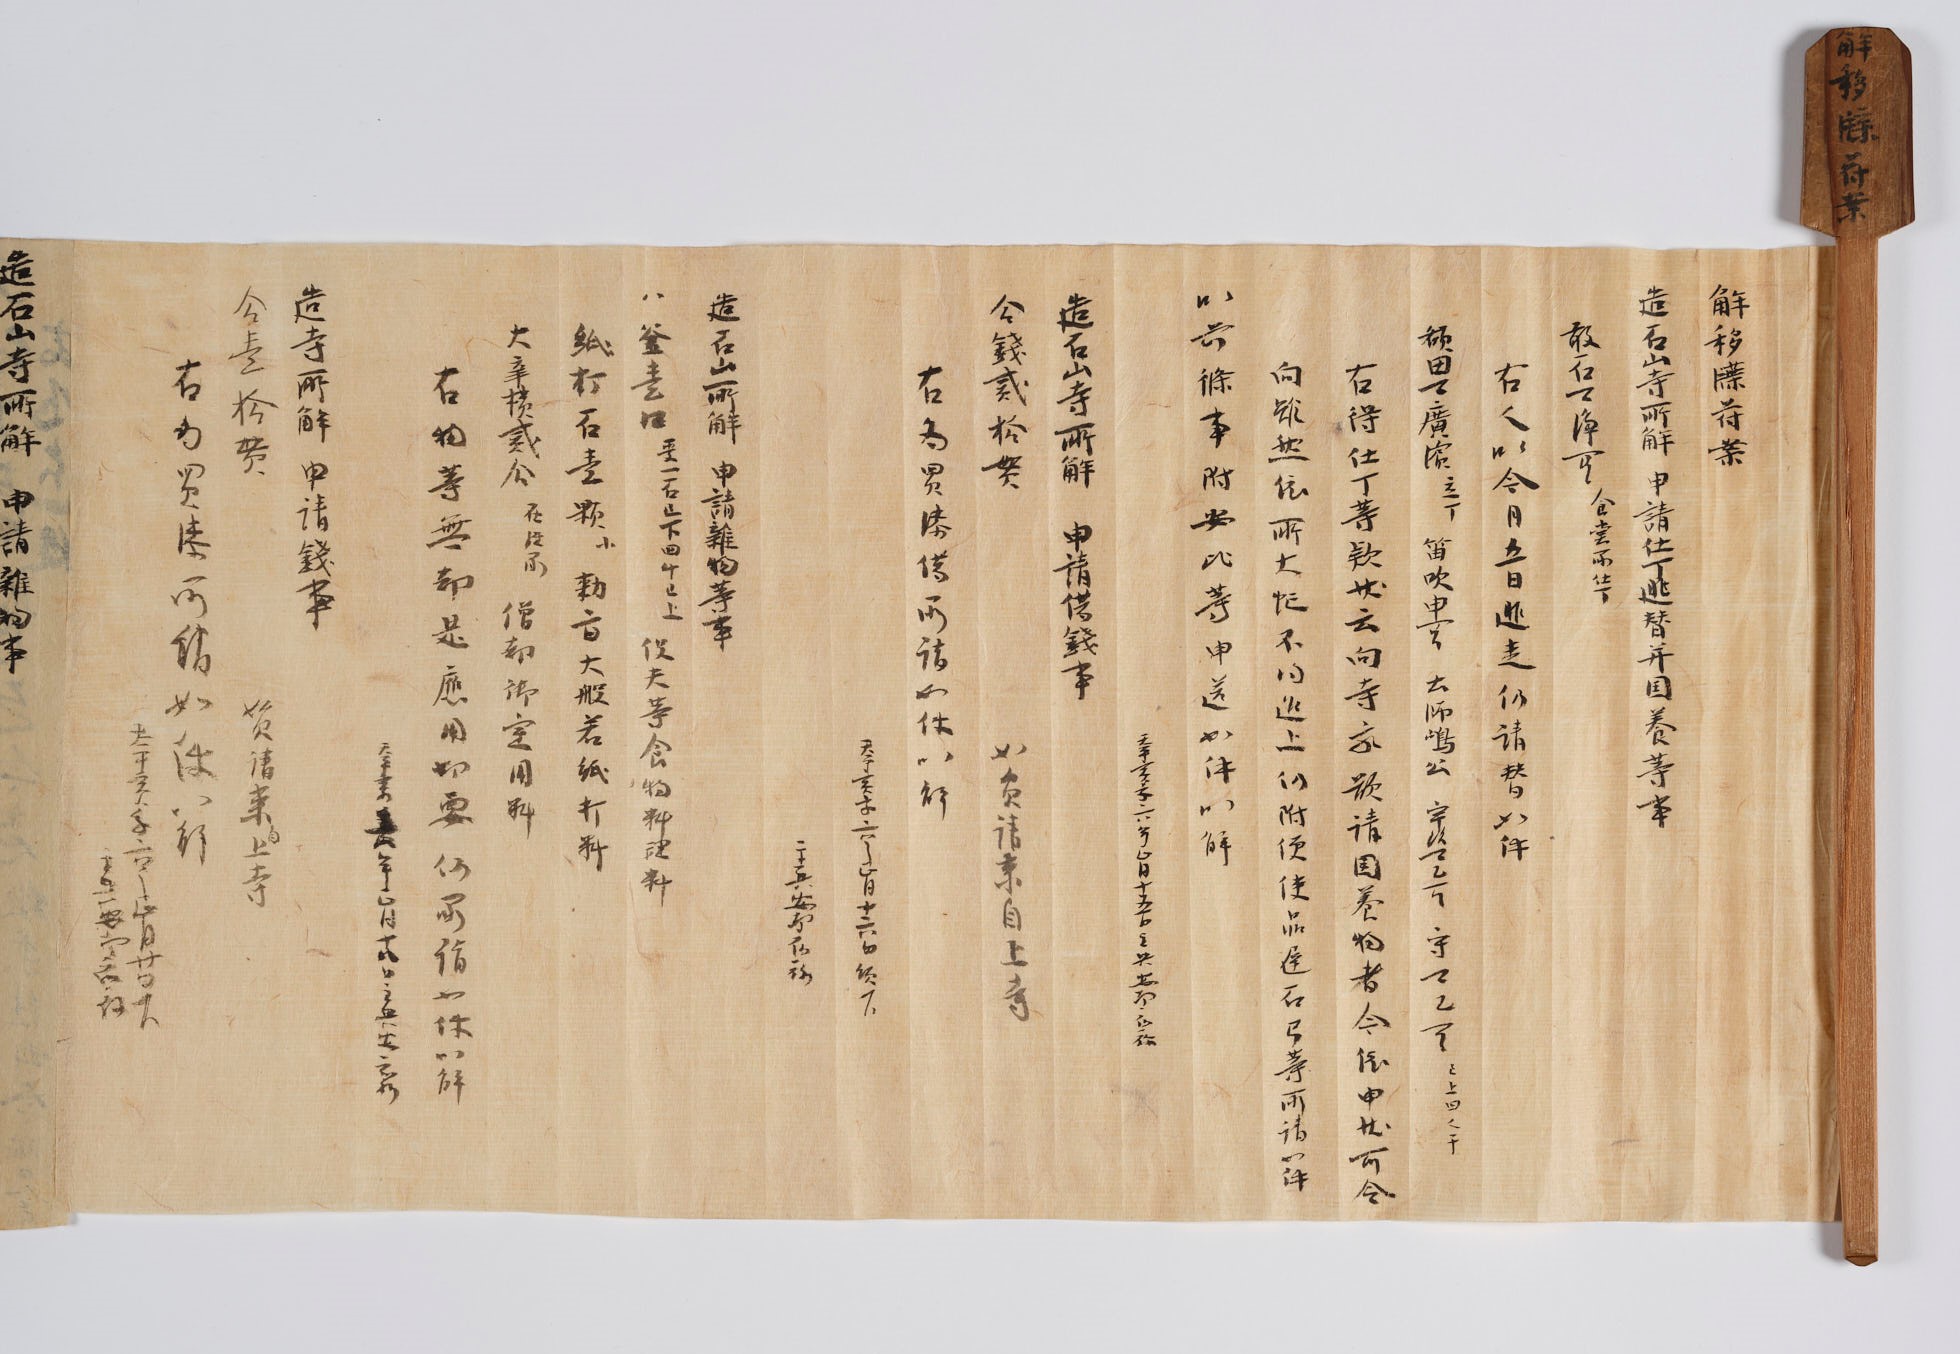 解移牒符案
解移牒符案
造石山寺所解 申請仕丁逃替并国養等事
敢石マ浄万呂 食堂所仕丁
右人以今月五日逃走仍請替如件
額田マ廣濱 立丁 笛吹申万呂 大師嶋公 守マ乙万呂 已上四人干
右得仕丁等款状云向寺家欲請国養物者今依申状可令
向雖然依所大忙不得進上仍附便使品遅石弓等所請如件
以前條事附出比等申送如件以解
天平宝字六年正月十五日主典安都宿祢
造石山寺所解 申請借銭事
合銭貳拾貫 如員請来自上寺
右為買漆借所請如件以解
天平宝字六年正月十六日領下
主典安都宿祢
造石山所解 申請雑物等事
八釜壹口 受一石已下四斗已上 役夫等食物料
紙打石壹顆 小 勅旨大般若紙打料
大辛樻貳合 在 僧都御室用料
右物等無却是應用切要仍所請如件以解
天平宝字六年正月 日主典安都宿祢
造寺所解 申請銭事
合壹拾貫 員請来自上寺
右為買漆所請如件以解
天平宝字六年正月廿 日
主典安都宿祢
造石山寺所解 申請雑物事